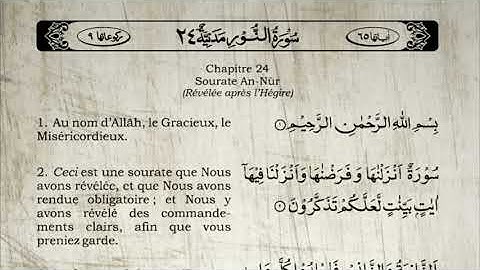 سُوْرَةُ النُّوْرِ مَدَنِيَّةٌ ٢٤
Chapitre 24
Sourate An-Nūr
(Révélée après l’Hégire)
1. Au nom d’Allāh, le Gracieux, le
Miséricordieux.
بِسْمِ اللّٰهِ الرَّحْمٰنِ الرَّحِيْمِ ۝١
2. Ceci est une sourate que Nous
avons révélée, et que Nous avons
rendue obligatoire ; et Nous y
avons révélé des commande-
ments clairs, afin que vous
preniez garde.
سُوْرَةٌ اَنْزَلْنٰهَا وَ فَرَضْنٰهَا وَ اَنْزَلْنَا فِيْهَاۤ
اٰيٰتٍۭ بَيِّنٰتٍ لَّعَلَّكُمْ تَذَكَّرُوْنَ